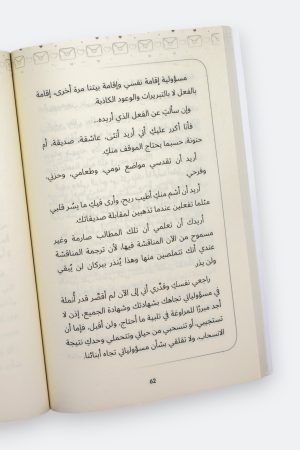 مسؤولية إقامة نفسي وإقامة بيتنا مرة أخرى، إقامة
بالفعل لا بالتبريرات والوعود الكاذبة.
وإن سألتِ عن الفعل الذي أريده..
فأنا أكرر عليكِ أني أريد أنثى، عاشقة، صديقة، أم
حنونة، حسبما يحتاج الموقف منكِ.
أريد أن تقدسي مواضع نومي، وطعامي، وحزني،
وفرحي.
أريد أن أشم منكِ أطيب ريح، وأرى فيكِ ما يسُر قلبي
مثلما تفعلين عندما تذهبين لمقابلة صديقاتك.
أريدك أن تعلمي أن تلك المطالب صارمة وغير
مسموح من الآن المناقشة فيها، لأن ترجمة المناقشة
عندي أنك تتملصين منها وهذا يُنذر ببركان لن يُبقي
ولن يذر.
راجعي نفسكِ وقدَّري أني إلى الآن لم أقصَّر قدر أنملة
في مسؤولياتي تجاهك بشهادتك وشهادة الجميع، إذن لا
أجد مبررًا للمراوغة في تلبية ما أحتاج، ولن أقبل، فإما أن
تستجيبي، أو تنسحبي من حياتي وتتحملي وحدكِ نتيجة
الانسحاب، ولا تقلقي بشأن مسؤولياتي تجاه أبنائنا.
62